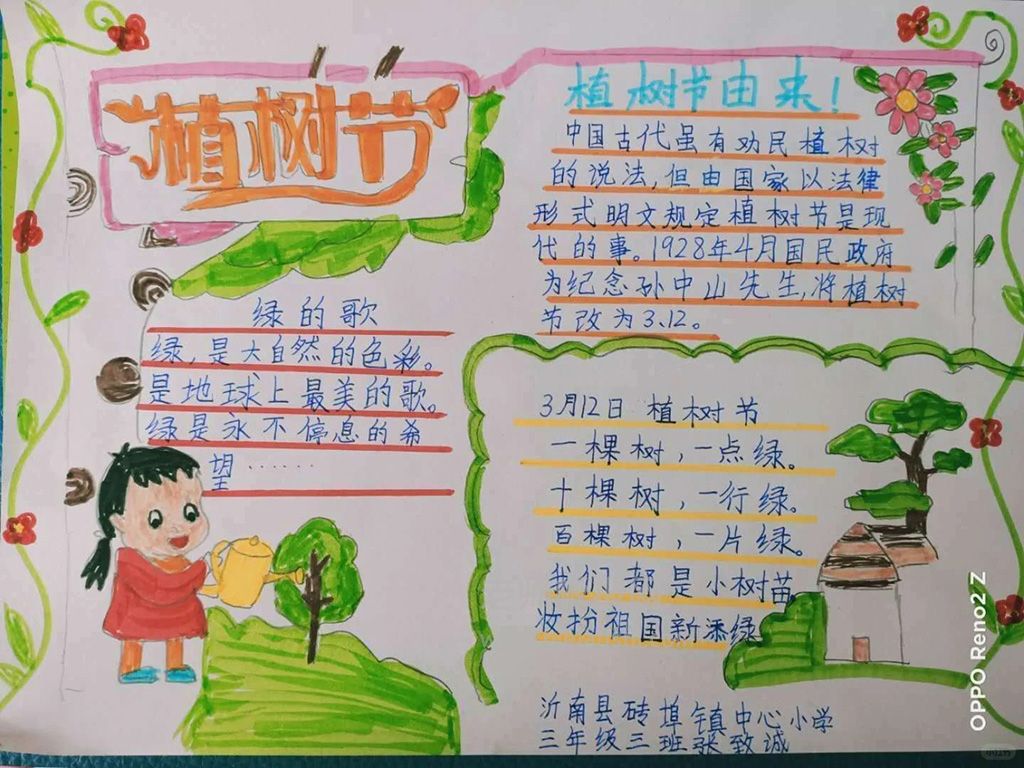 植树节
植树节由来！
中国古代虽有劝民植树
的说法，但由国家以法律
形式明文规定植树节是现
代的事。1928年4月国民政府
为纪念孙中山先生，将植树
节改为3.12。
绿的歌
绿，是大自然的色彩。
是地球上最美的歌。
绿是永不停息的希
望……
3月12日 植树节
一棵树，一点绿。
十棵树，一行绿。
百棵树，一片绿。
我们都是小树苗
妆扮祖国新添绿
沂南县砖埠镇中心小学
三年级三班张致诚
OPPO Reno2 Z